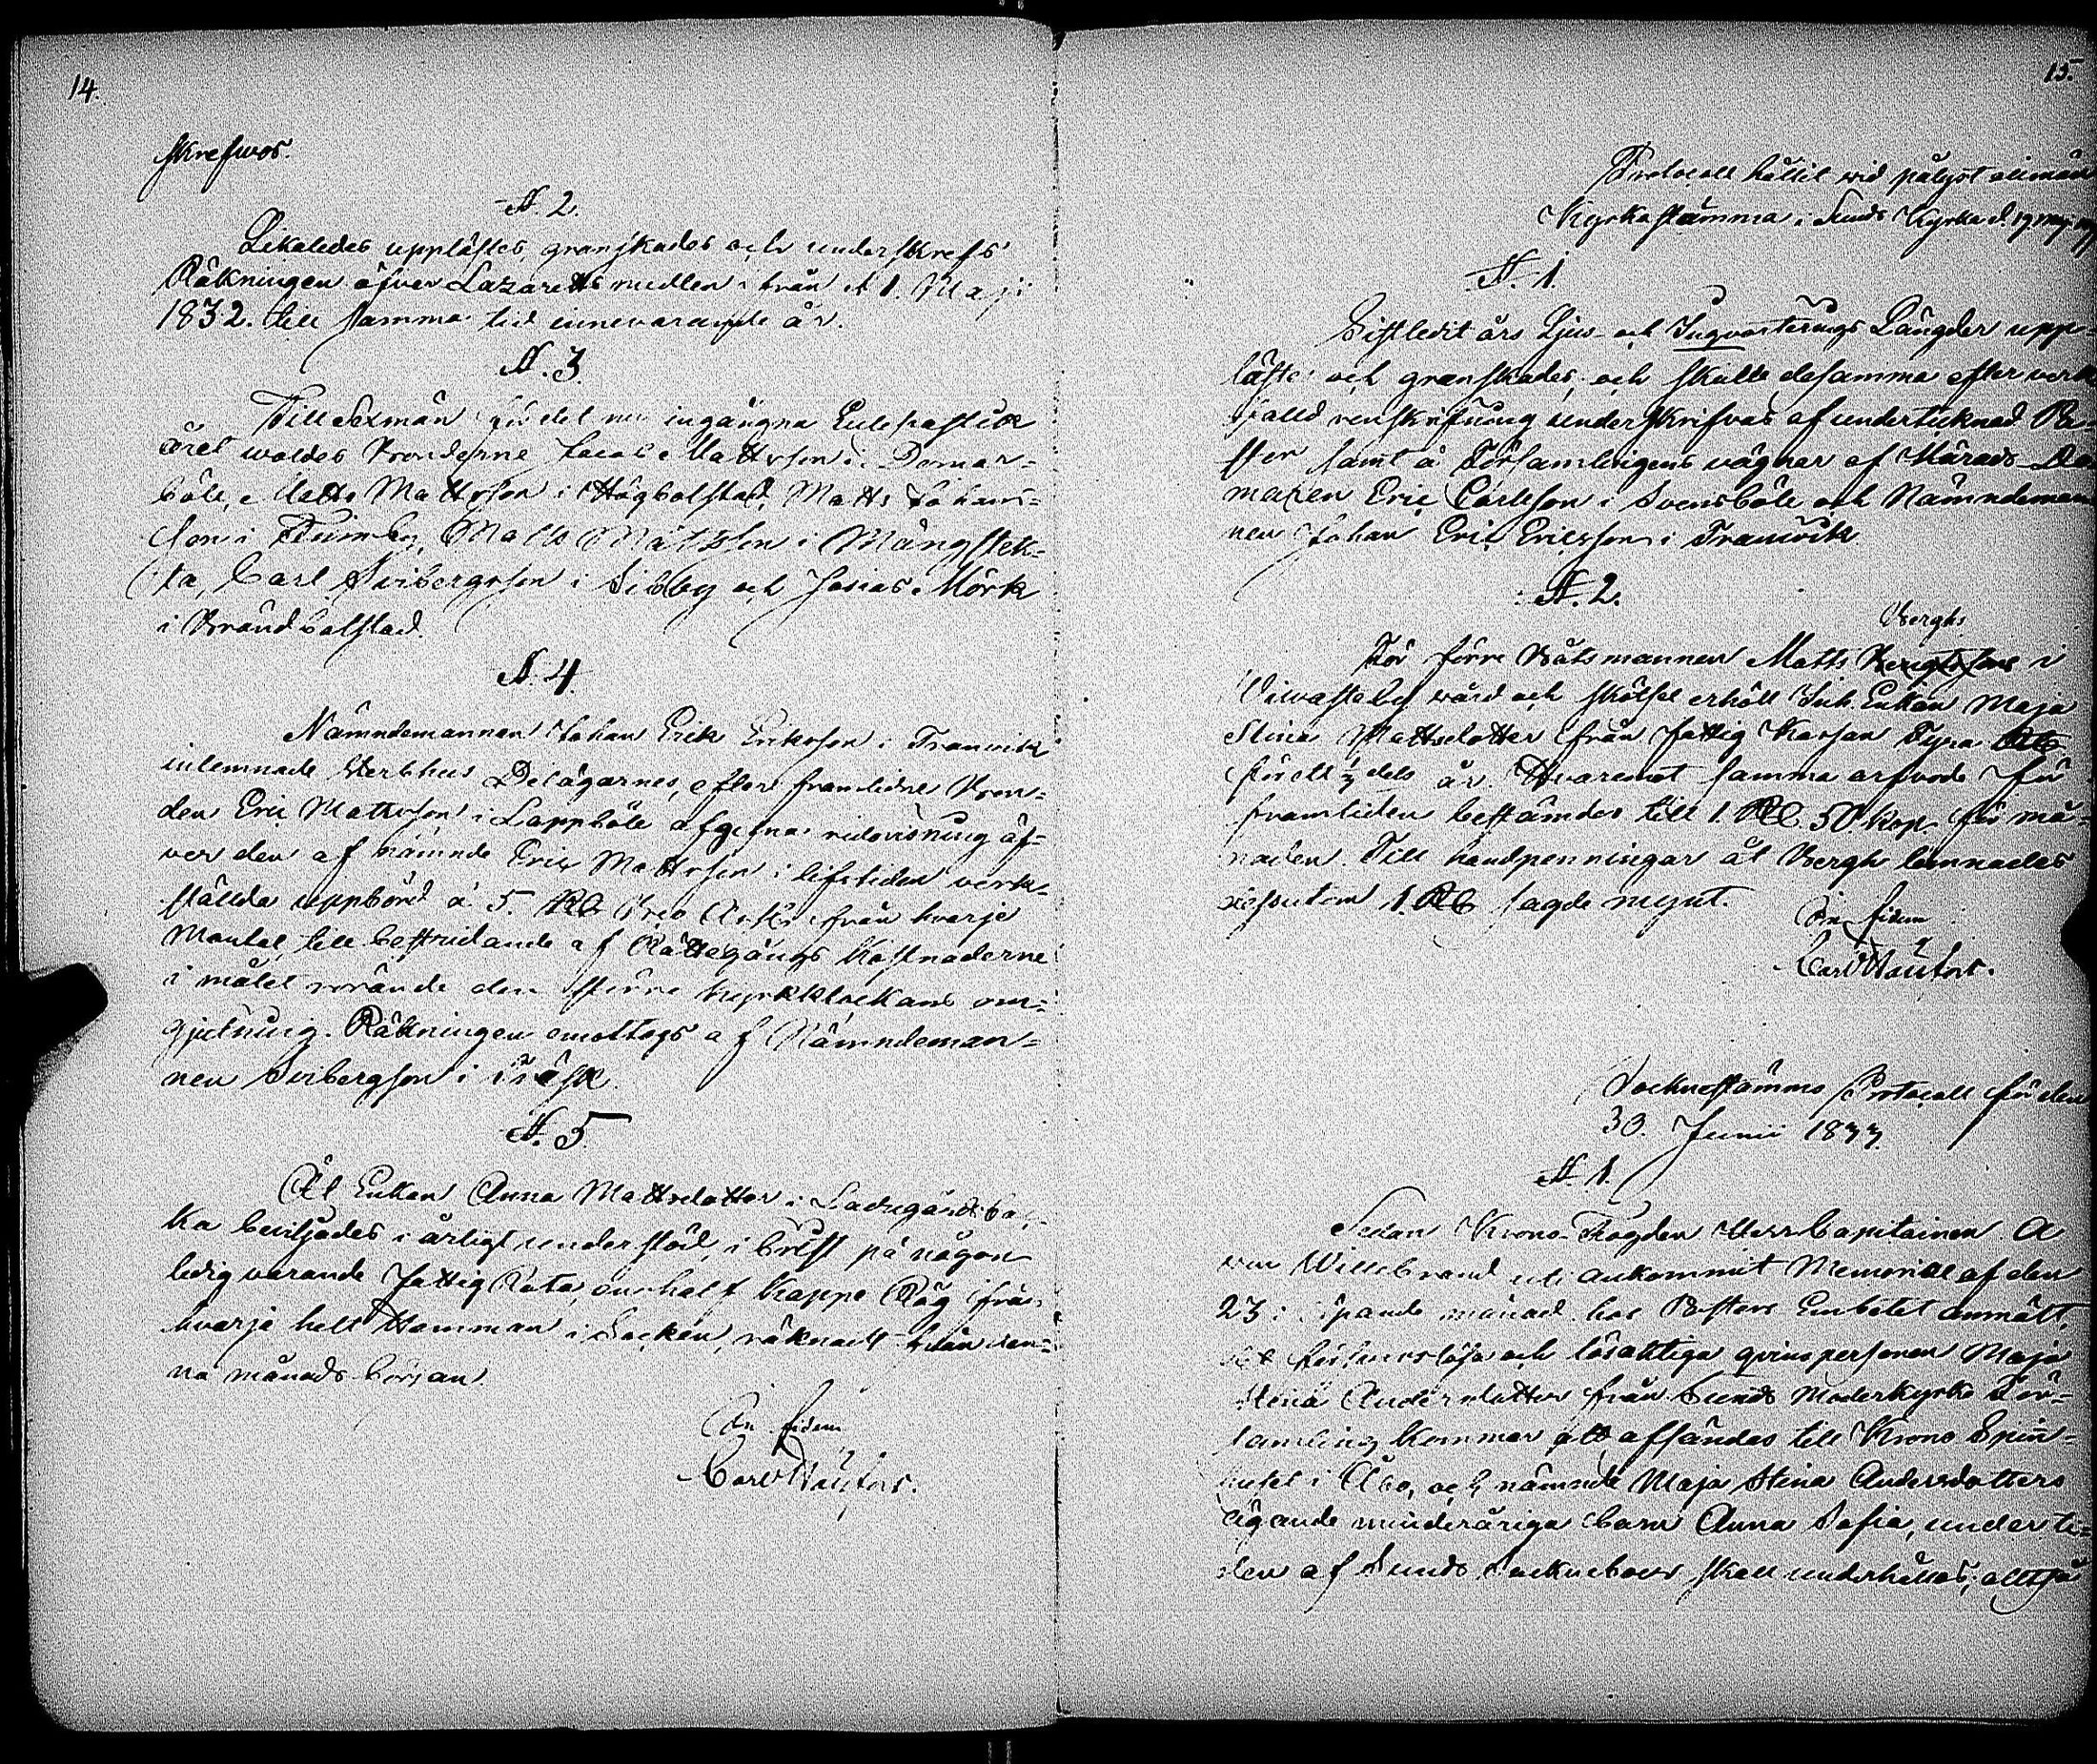 14.
skrefwos.
N. 2.
Likaledes upplästes, granskades och underskrefs
Räkningen öfver Lazaretts medlen ifrån d 1. Maji
1832. till samma tid innevarande år.
N. 3.
Till Sexmän för det nu ingångna Eclesiastik
året waldes Bönderne Jacob Mattsson i Domar-
böle, Matts Mattsson i Högbolstad, Matts Johans-
son i Finnby, Matts Mattsson i Mångstek-
ta, Carl Sirbergsson i Sibby och Josias Mörk
i Brändbolstad.
N. 4.
Nämndemannen Johan Erik Eriksson i Tranvik
inlemnade Sterbhus Delägarnes, efter framlidne Bon-
den Eric Mattsson i Lappböle afgifna redovisning öf-
ver den af nämnde Eric Mattsson i lifstiden verk-
ställda uppbörd à 5. Rb Bco Ass. från hvarje
Mantal, till bestridande af Rättegångs Kostnaderne
i målet rörande den större kyrkklockans om-
gjutning. Räkningen emottogs af Nämndeman-
nen Sirbergsson i Träsk
N. 5.
Åt Enkan Anna Mattsdotter i Ladugårdsba-
ka beviljades i årligt understöd, i brist på någon
ledig varande Fattig Rota, en half kappe Råg från
hvarje helt Hemman i Socken, räknadt från den-
na månads början.
In fidem
Carl
15.
Protocoll hållit vid pålyst allmän
Kyrkostämma i Sunds Kyrka d. 19 Maj
N. 1.
Sistledit års Ljus- och Inqvarterings Längder upp-
lästes och granskades, och skulle desamma efter verk
ställd renskrifning underskrifvas af undertecknad Pa-
stor samt å Församlingens vägnar af Härads Do
maren Eric Carlsson i Svensböle och Nämndeman
nen Johan Eric Ericsson i Tranvik.
N. 2.
Berghs
För förre Båtsmannen Matts i
vård och skötsel erhöll Inh. Enkan Maja
Stina Mattsdotter från Fattig Kassan Fyra Rb
för ett ½ dels år. Hvaremot samma arfvode för
framtiden bestämdes till 1. Rb. 50. kop. för må-
naden. Till handpenningar åt Bergh lemnades
dessutom 1. Rb sagde mynt.
In fidem
Carl
Sockenstämmo Protocoll för den
30. Junii 1833.
N. 1.
Sedan Krono-Fogden Herr Capitainen A
von Willebrand uti ankommit Memorial af den
23 i löpande månad hos Pastors Embetet anmält,
det försvarslösa och lösaktiga qvinspersonen Maja
Stina Andersdotter från Sunds Moderkyrko För-
samling kommer att afsändas till Krono Spinn-
huset i Åbo, och nämnde Maja Stina Andersdotters
ägande minderåriga barn Anna Sofia, under ti-
den af Sunds Socknebor skall underhållas, alltså